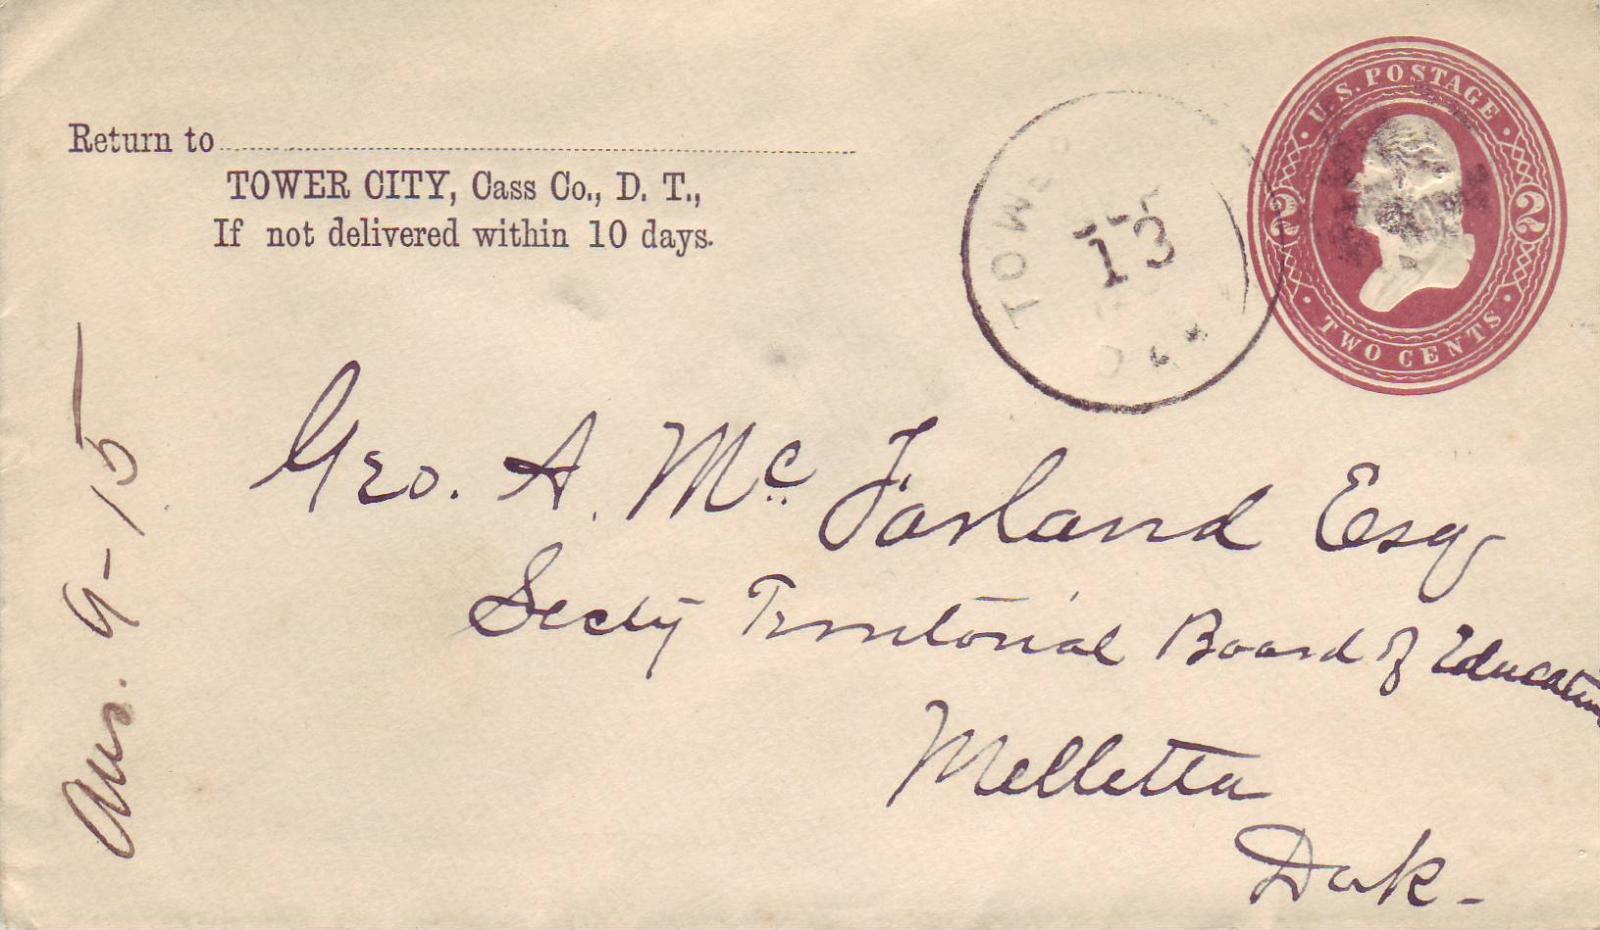 Return to
TOWER CITY, Cass Co., D. T.,
If not delivered within 10 days.
TOWE
13
Dak
U.S. POSTAGE
2 2
TWO CENTS
Geo. A. Mc Farland Esq
Secty Territorial Board of Education
Melletta
Dak-
Ans. 9-15